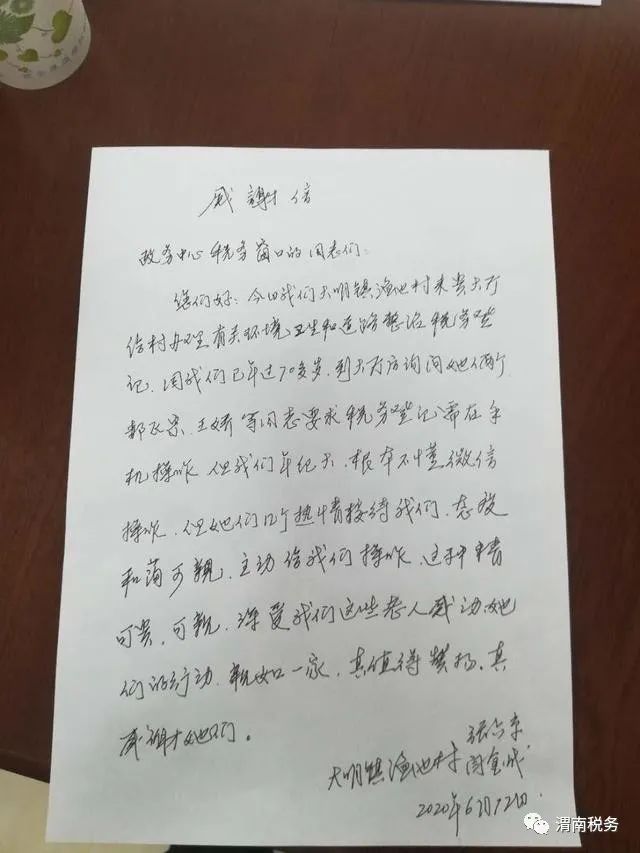 感謝信
政务中心税务窗口的同志们:
您们好: 今日我们大明镇渔池村来贵大厅
给村办理有关环境卫生和道路整治税务登
记, 因我们已年过70多岁, 到大厅访询问她俩个
郭 王娇等同志要求税务登记需在手
机操作 但我们年纪大、根本不懂微信
操作, 但她们几个热情接待我们、态度
和蔼可親, 主动给我们操作, 这种精
可贵, 可親, 深受我们这些老人感动她
们的行动, 親如一家, 真值得赞扬, 真
感謝她们。
张
大明镇渔池村 闵金成
2020年6月12日
渭南税务